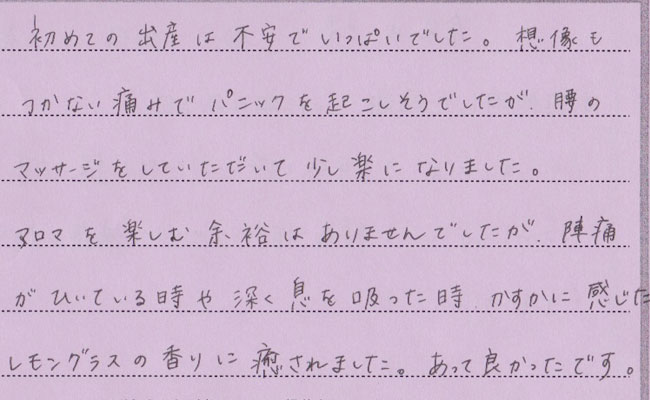 初めての出産は不安でいっぱいでした。想像も
つかない痛みでパニックを起こしそうでしたが、腰の
マッサージをしていただいて少し楽になりました。
アロマを楽しむ余裕はありませんでしたが、陣痛
がひいている時や深く息を吸った時、かすかに感じた
レモングラスの香りに癒されました。あって良かったです。